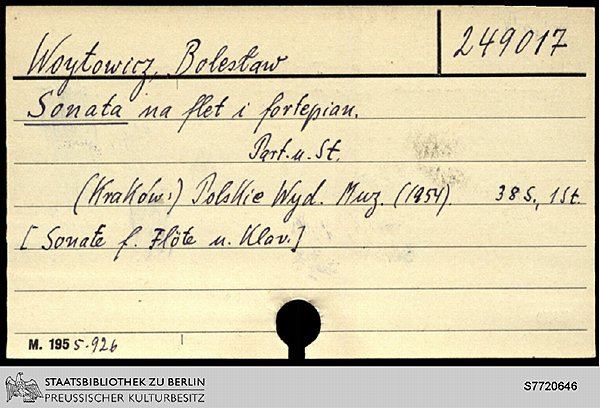 Woytowicz, Bolesław 249017
Sonata na flet i fortepian.
Part. u. St.
(Kraków:) Polskie Wyd. Muz. (1954). 38 S., 1 St.
[Sonate f. Flöte u. Klav.]
M. 195 5.926
STAATSBIBLIOTHEK ZU BERLIN
PREUSSISCHER KULTURBESITZ
S7720646